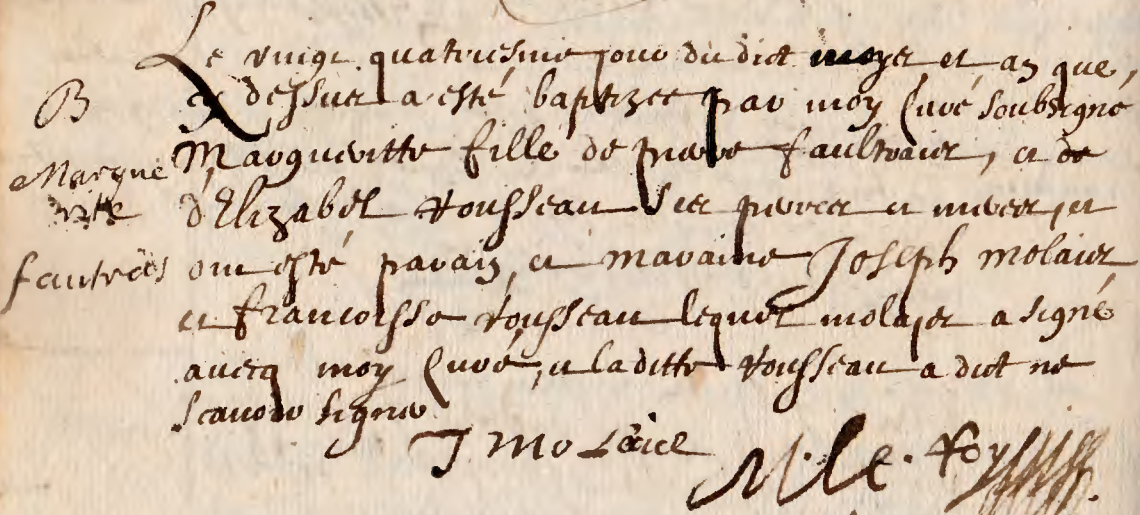 B
Marque
ritte
fautràés
Le vingt quatriesme jour dudict moys et an que,
cy dessus a esté baptizee par moy Curé soubsigné
Margueritte fille de pierre faultraier, et de
d'Elizabét Rousseau ses pere et mere, et
ont esté parain, et maraine Joseph molaier
et francoisse Rousseau lequel molaier a signé
avecq moy Curé, et laditte Rousseau a dict ne
scavoir signer
J Molaiel
M. le. Roy